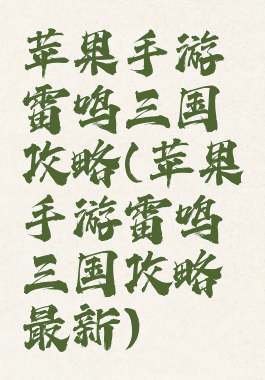 苹果手游
雷鸣三国
攻略(苹果
手游雷鸣
三国攻略
最新)